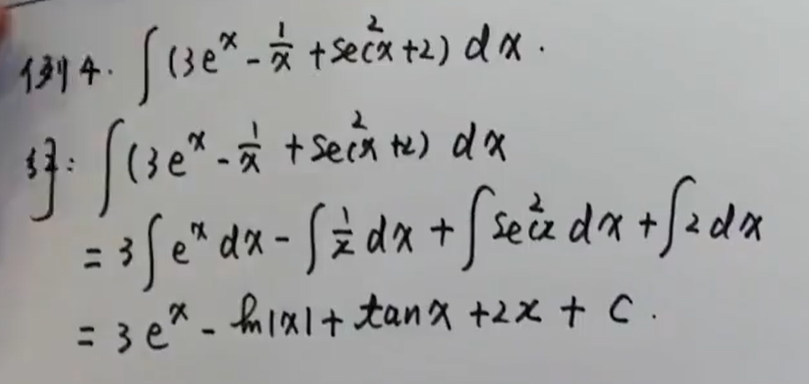 例4. ∫(3eˣ - 1/x + sec²x + 2) dx.
解: ∫(3eˣ - 1/x + sec²x + 2) dx
= 3∫eˣ dx - ∫1/x dx + ∫sec²x dx + ∫2 dx
= 3eˣ - ln|x| + tanx + 2x + C.